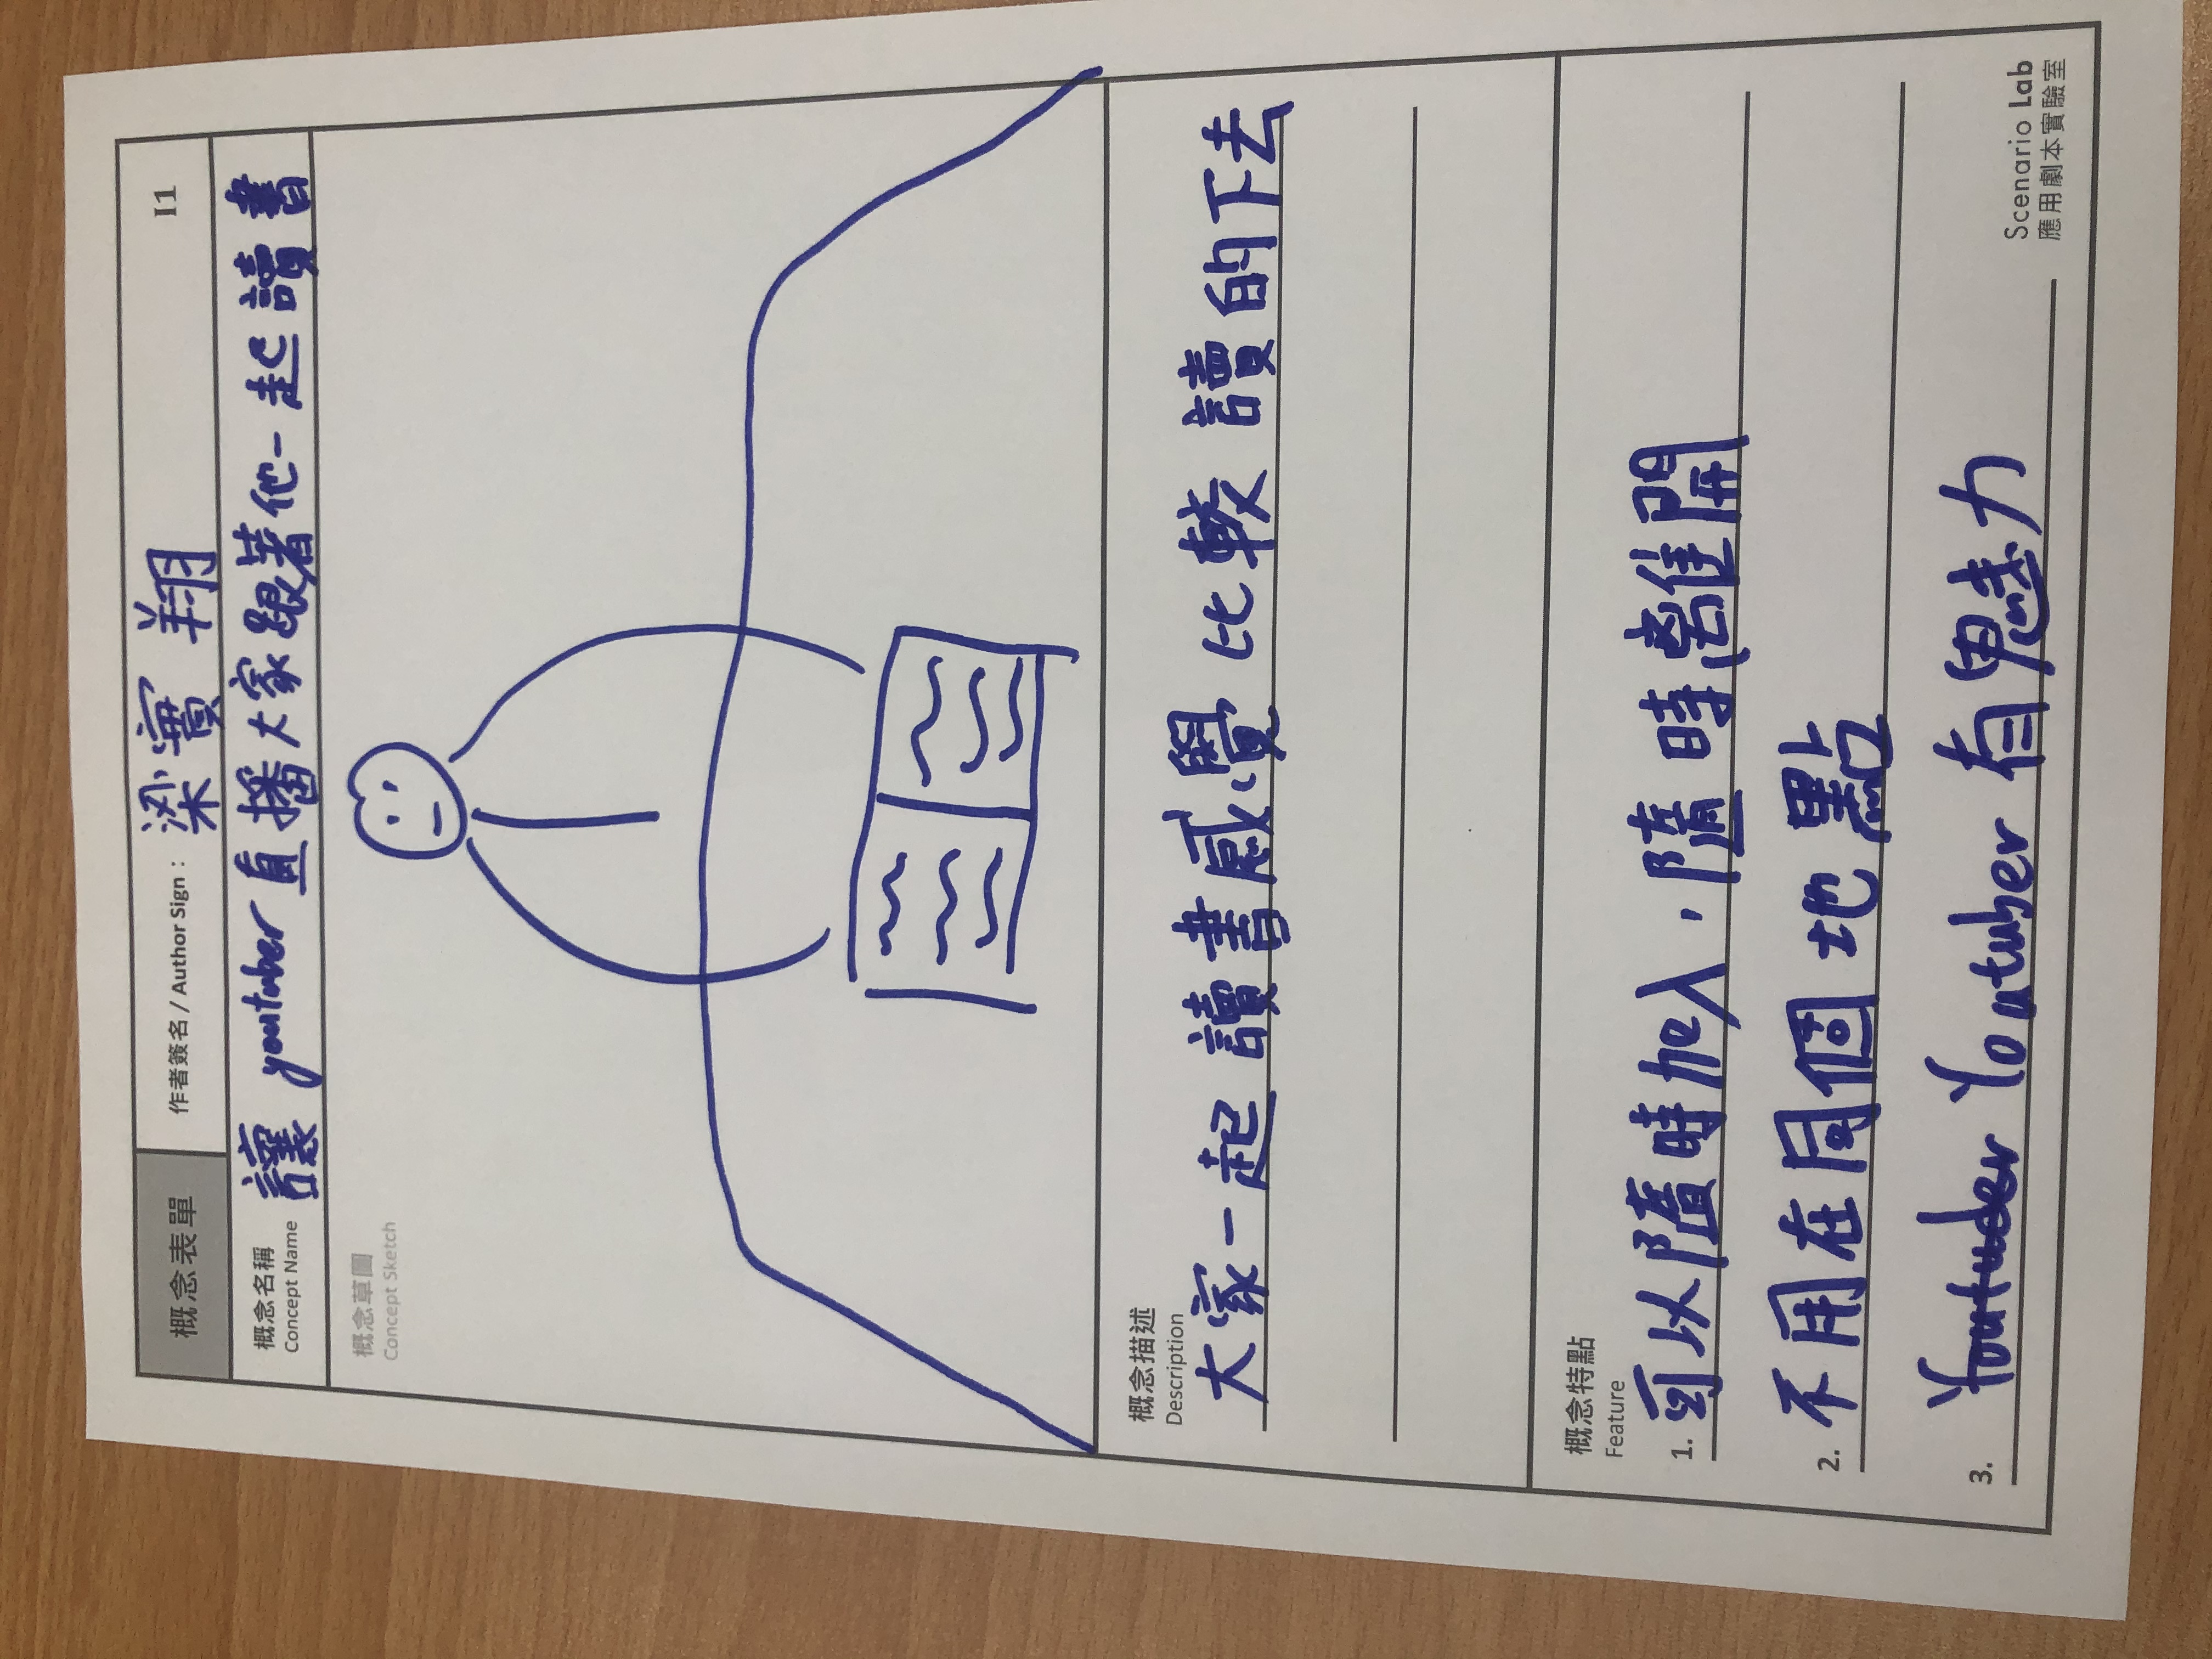 概念表單
作者簽名 / Author Sign : 梁實翔
I1
概念名稱
Concept Name
讓 youtuber 直播大家跟著他一起讀書
概念草圖
Concept Sketch
概念描述
Description
大家一起讀書感覺比較讀的下去
概念特點
Feature
1. 可以隨時加入,隨時離開
2. 不用在同個地點
3. Youtuder Youtuber 有魅力
Scenario Lab
應用劇本實驗室